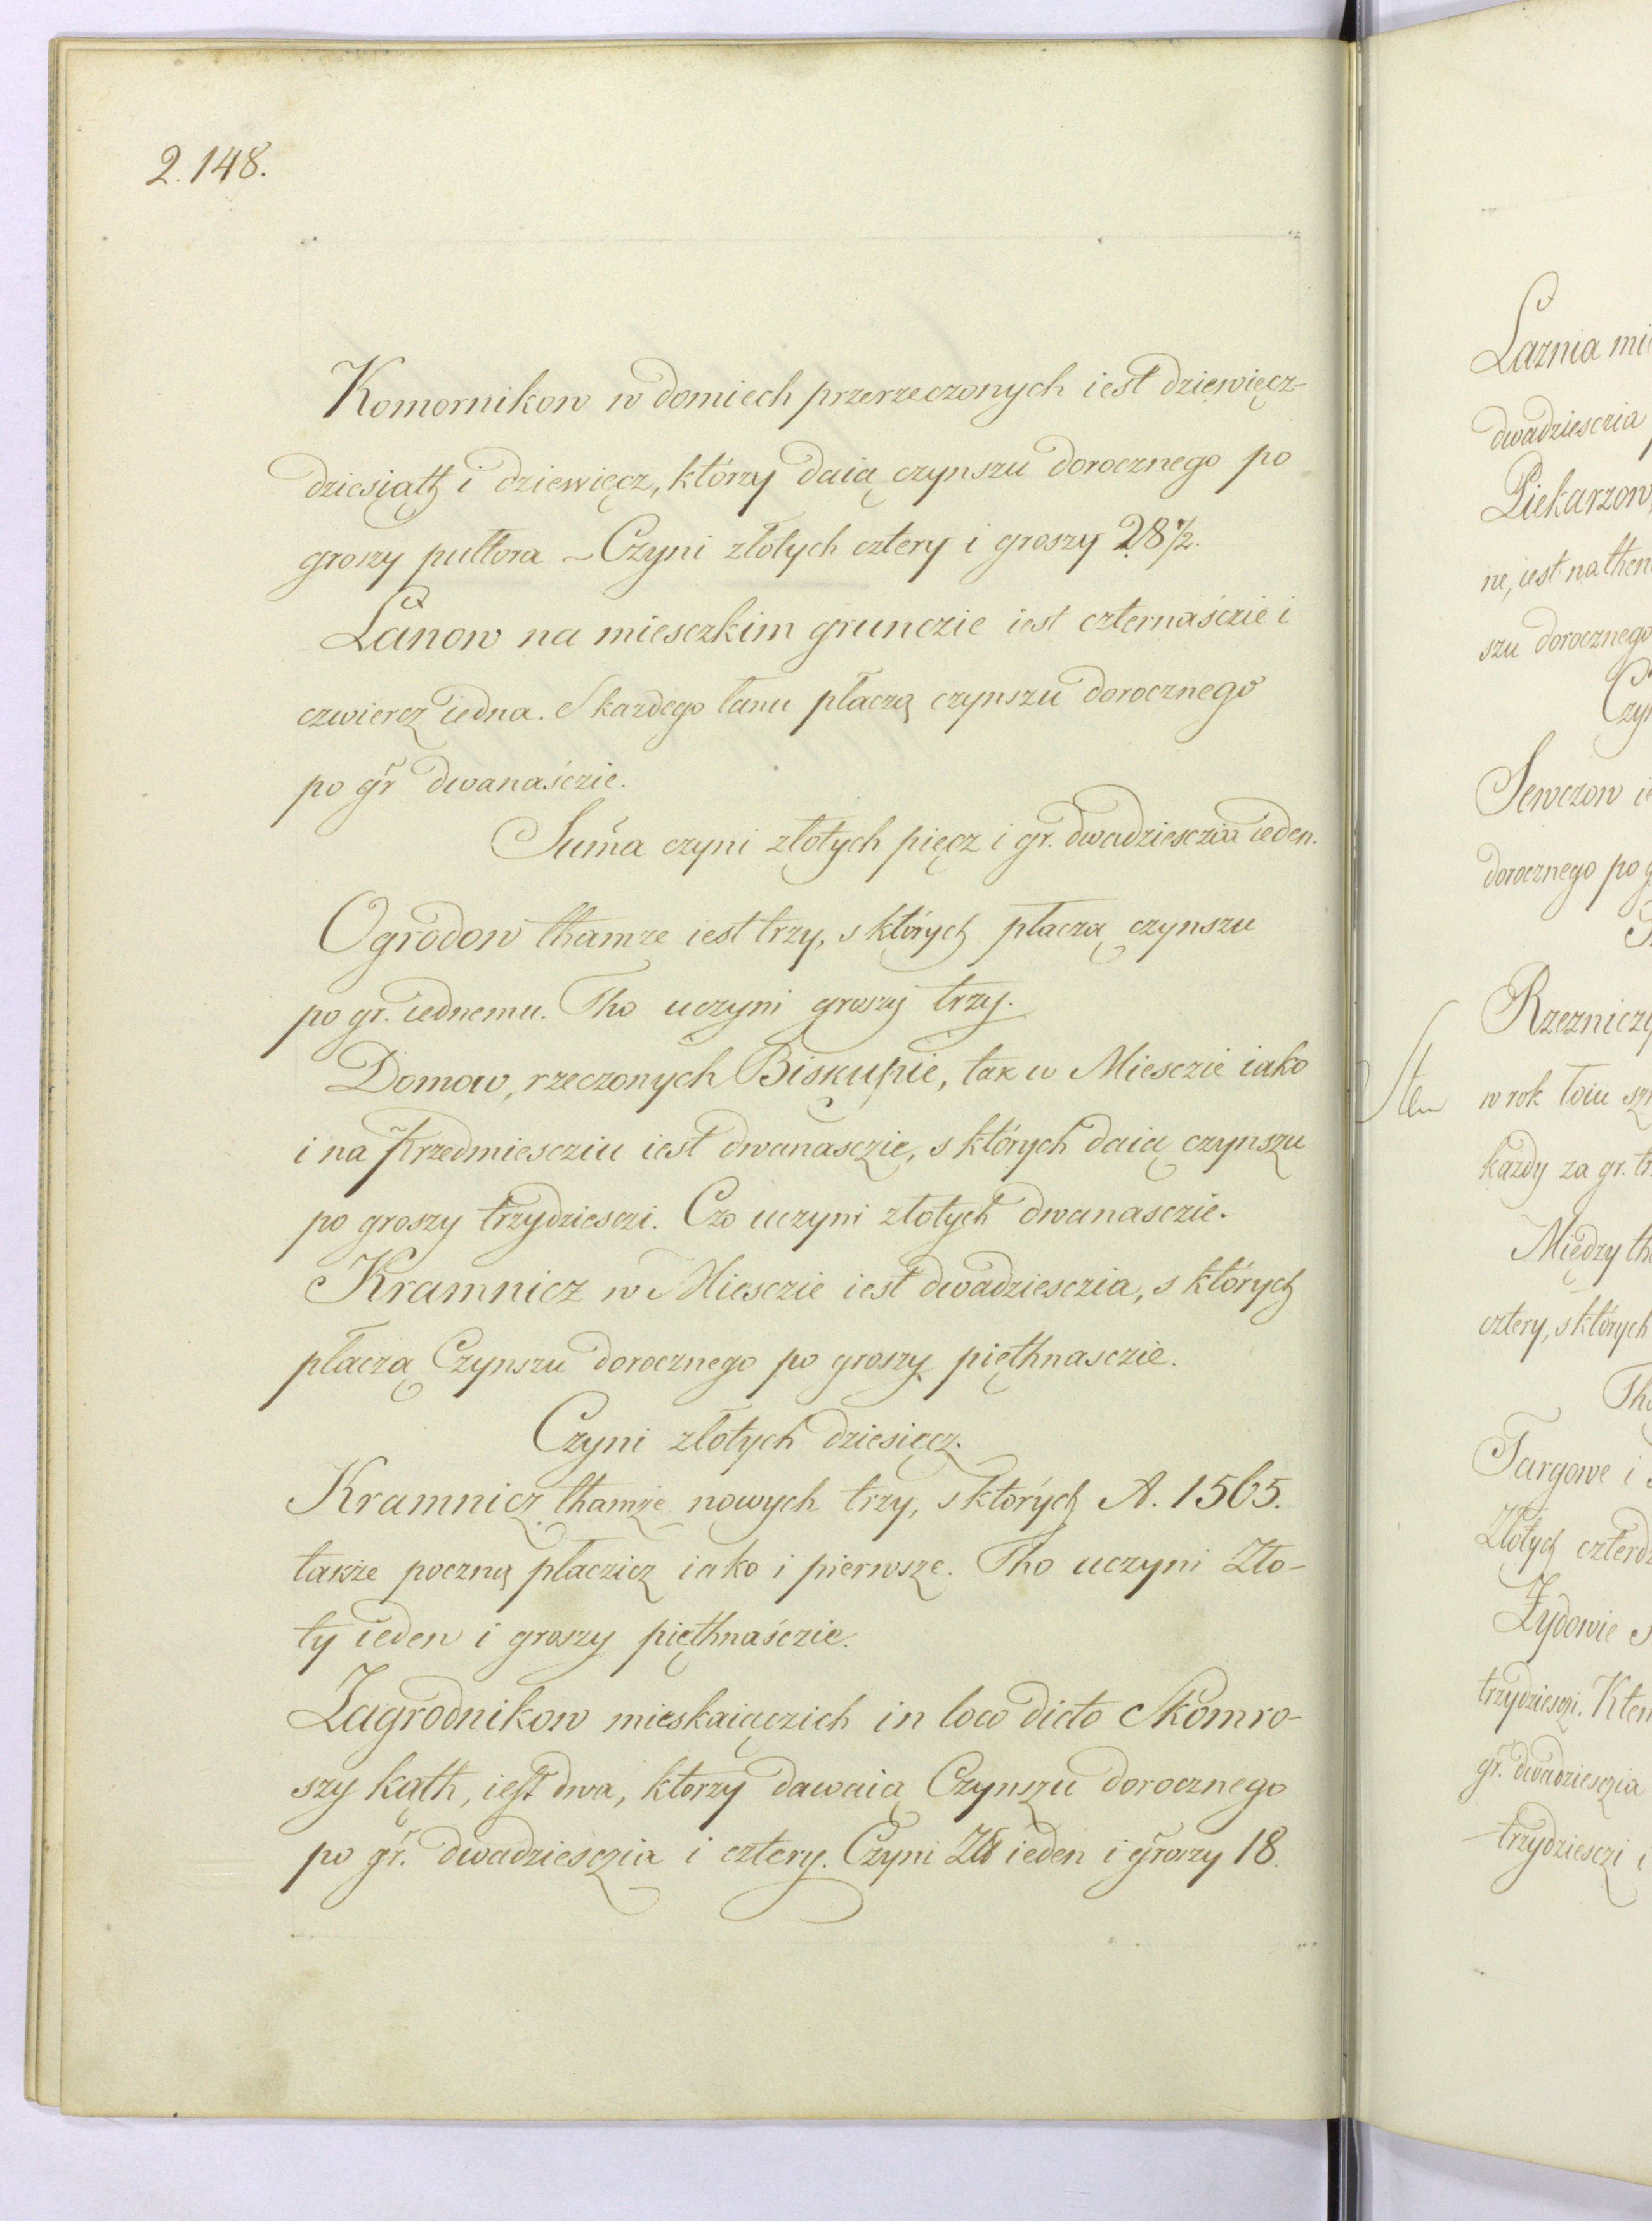 2.148.
Komornikow w domiech przerzeczonych iest dziewięcz-
dziesiąth i dziewięcz, którzy daią czynszu dorocznego po
groszy pułtora – Czyni złotych cztery i groszy 28½.
Łanow na miesczkim grunczie iest czternaśczie i
czwiercz iedna. S każdego łanu płaczą czynszu dorocznego
po gr dwanaśczie.
Suma czyni złotych pięcz i gr. dwadziesczia ieden.
Ogrodow thamże iest trzy, s których płaczą czynszu
po gr. iednemu. Tho uczyni groszy trzy.
Domow, rzeczonych Biskupie, tak w Miesczie iako
i na Przedmiescziu iest dwanasczie, s których daią czynszu
po groszy trzydziesczi. Czo uczyni złotych dwanasczie.
Kramnicz w Miesczie iest dwadziesczia, s których
płaczą Czynszu dorocznego po groszy pięthnasczie.
Czyni złotych dziesięcz.
Kramnicz thamże nowych trzy, s których A. 1565.
także poczną płaczicz iako i pierwsze. Tho uczyni Zło-
ty ieden i groszy pięthnaśczie.
Zagrodnikow mieskaiączich in loco dicto Skomro-
szy kąth, iest dwa, ktorzy dawaią Czynszu dorocznego
po gr. dwadziesczia i cztery. Czyni Zł ieden i groszy 18.
Łaznia
dwadziesczia
Piekarzow
ne, iest na then
szu dorocznego
Sewczow
dorocznego po
w rok łoiu
każdy za gr.
Między
cztery, s których
Targowe i
Złotych
Żydowie
trzydziesczi.
gr. dwadziesczia
trzydziesczi i